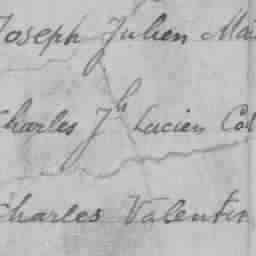 Joseph Julien Mai
Charles Jh Lucien Col
Charles Valentin